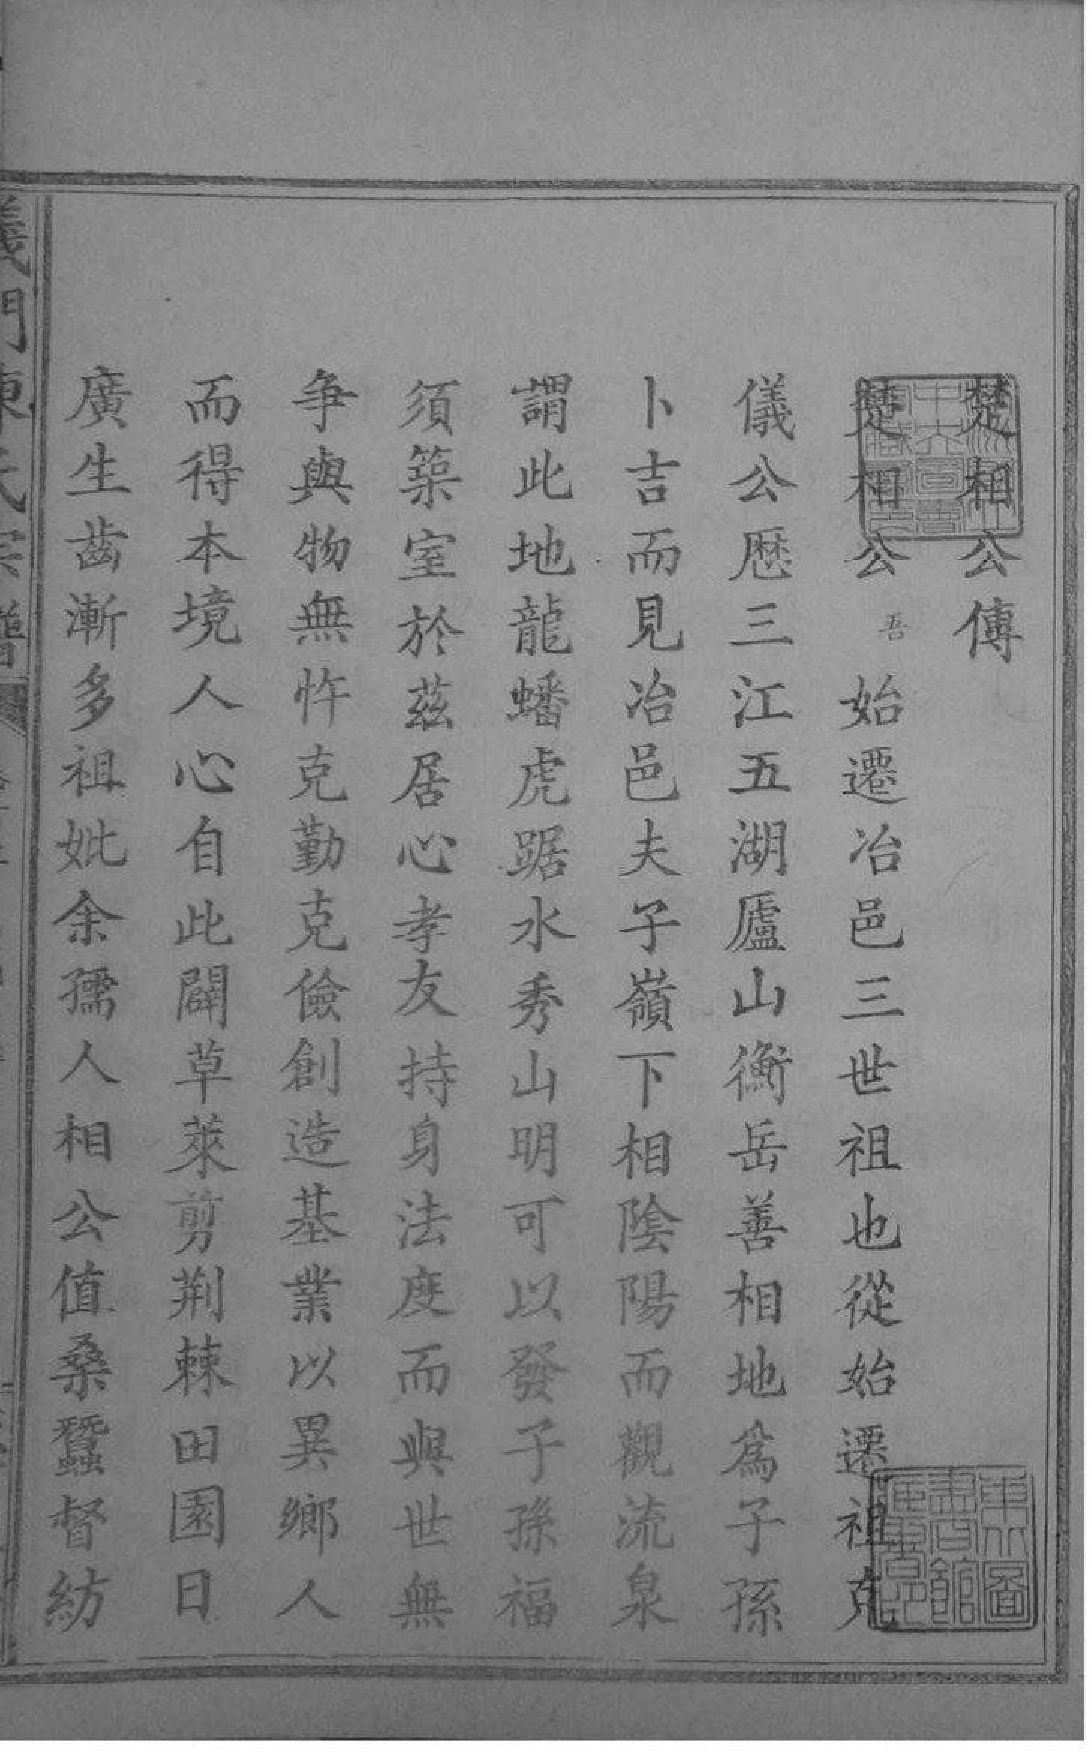 楚相公傳
楚相公吾始遷冶邑三世祖也從始遷祖克
儀公歷三江五湖廬山衡岳善相地為子孫
卜吉而見冶邑夫子嶺下相陰陽而觀流泉
謂此地龍蟠虎踞水秀山明可以發子孫福
須築室於茲居心孝友持身法度而與世無
争與物無忤克勤克儉創造基業以異鄉人
而得本境人心自此闢草萊剪荆棘田園日
廣生齒漸多祖妣余孺人相公值桑蠶督紡
義門陳氏宗譜